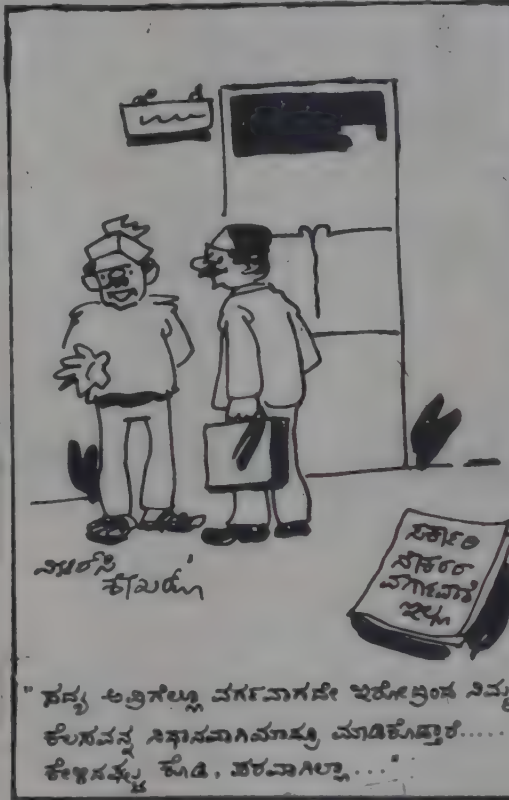 ಸರ್ಕಾರಿ
ನೌಕರರ
ವರ್ಗಾವಣೆ
ಇಲ್ಲ
" ಸದ್ಯ ಅವ್ರಿಗೆಲ್ಲೂ ವರ್ಗವಾಗದೇ ಇರೋದ್ರಿಂದ ನಿಮ್ಮ
ಕೆಲಸವನ್ನ ನಿಧಾನವಾಗಿ ಮಾಡಿಕೊಡ್ತಾರೆ.....
ಕೇಳಿದಷ್ಟು ಕೊಡಿ, ಪರವಾಗಿಲ್ಲಾ..."